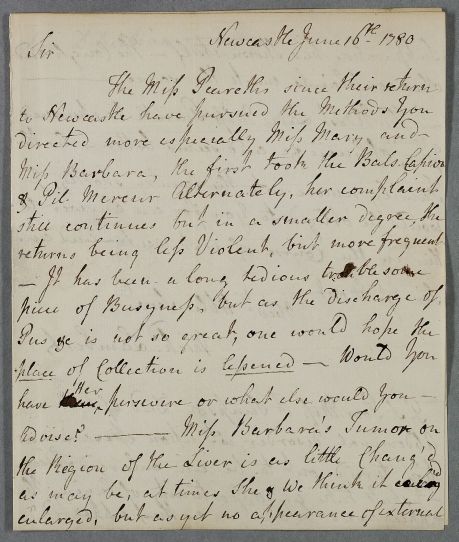 Newcastle June 16th. 1780
Sir
The Miss Peareths since their return
to Newcastle have pursued the Methods You
directed more especially Miss Mary and
Miss Barbara, the first took the Bals. Capiva
& Pil. Mercur Alternately, her complaint
still continues but in a smaller degree, the
returns being less Violent, but more frequent
— It has been a long tedious troublesome
piece of Busyness, but as the Discharge of
Pus &c is not so great, one would hope the
place of Collection is lessened — Would You
have her persevere or what else would You —
Advise? — Miss Barbara's Tumor on
the Region of the Liver is as little Chang'd
as may be, at times She & We think it
enlarged, but as yet no appearance of external